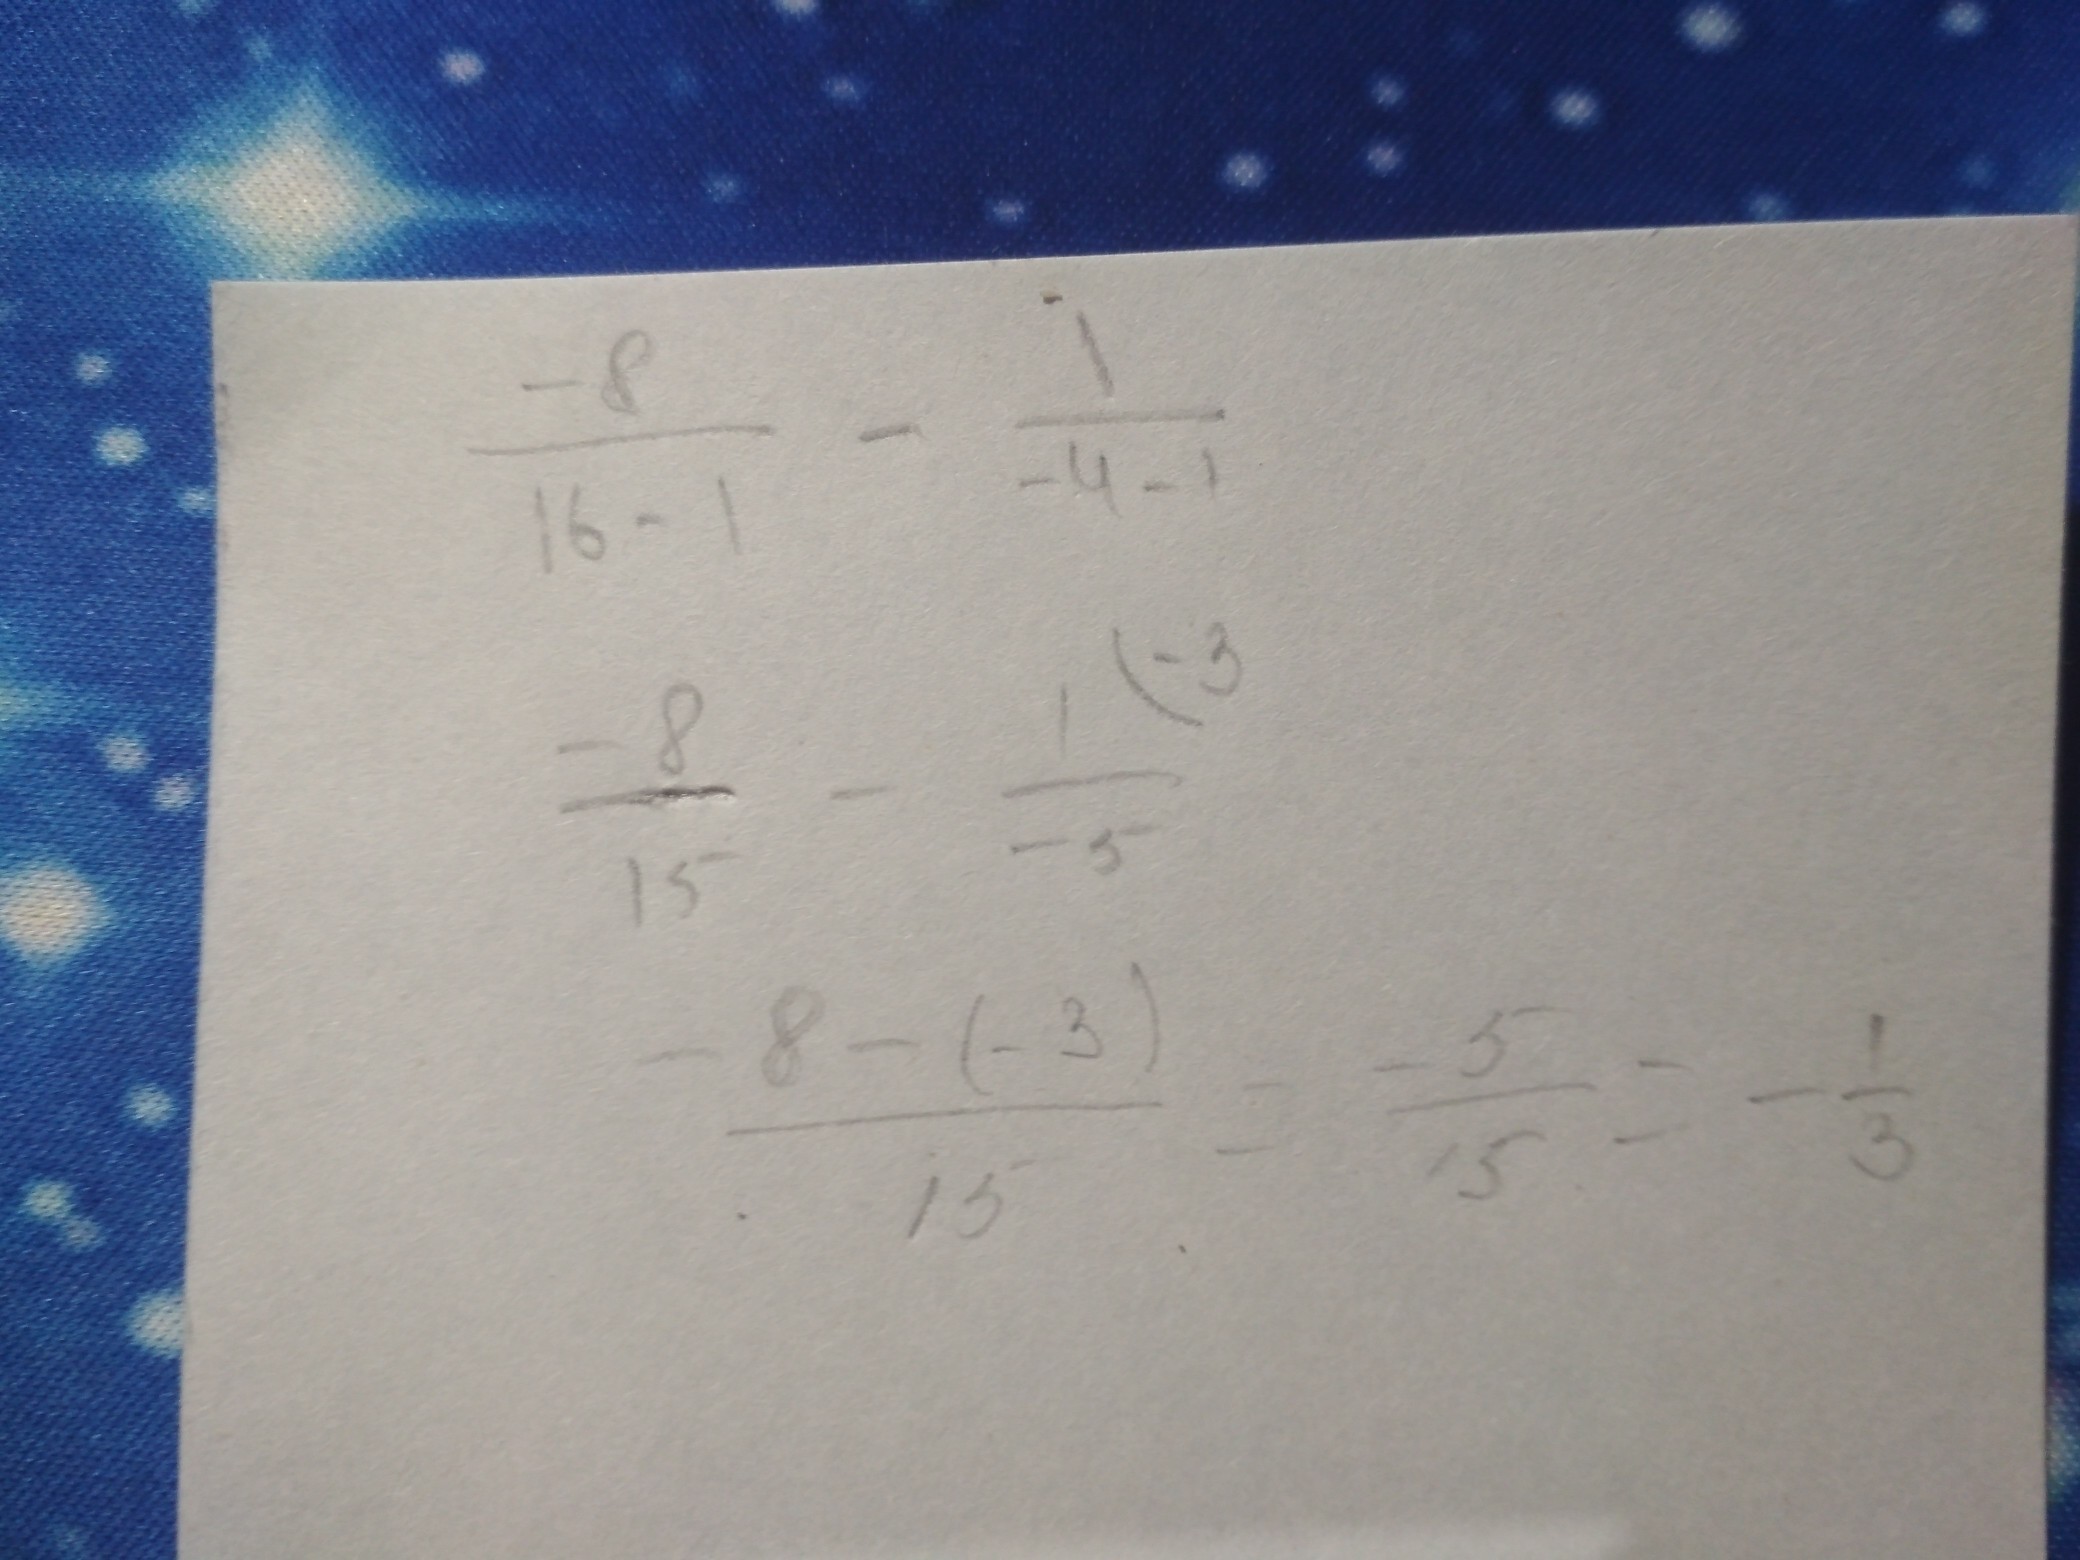 -8/(16-1) - 1/(-4-1)
-8/15 - 1/(-5) (-3
-8-(-3)/15 = -5/15 = -1/3